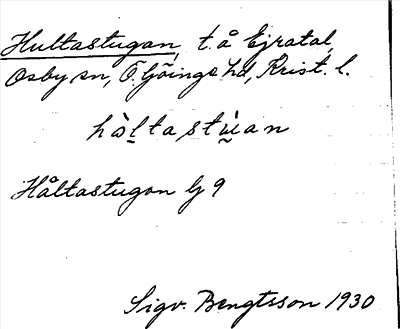 Hultastugan, t. å Ejratal,
Osby sn, Ö. Göinge hd, Krist. l.
hòl̠tastùan
Håltastugan G 9
Sigv. Bengtsson 1930